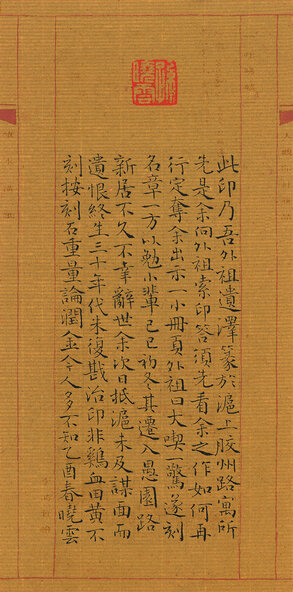 此印乃吾外祖遺澤篆於滬上胶州路寓所
先是余向外祖索印答須先看余之作如何再
行定奪余出示一小冊頁外祖曰大喫一驚遂刻
名章一方以勉小輩己巳初冬其遷入愚園路
新居不久不幸辭世余次日抵滬未及謀面而
遺恨終生三十年代朱復戡治印非鷄血田黃不
刻按刻石重量論潤金今人多不知乙酉春曉雲